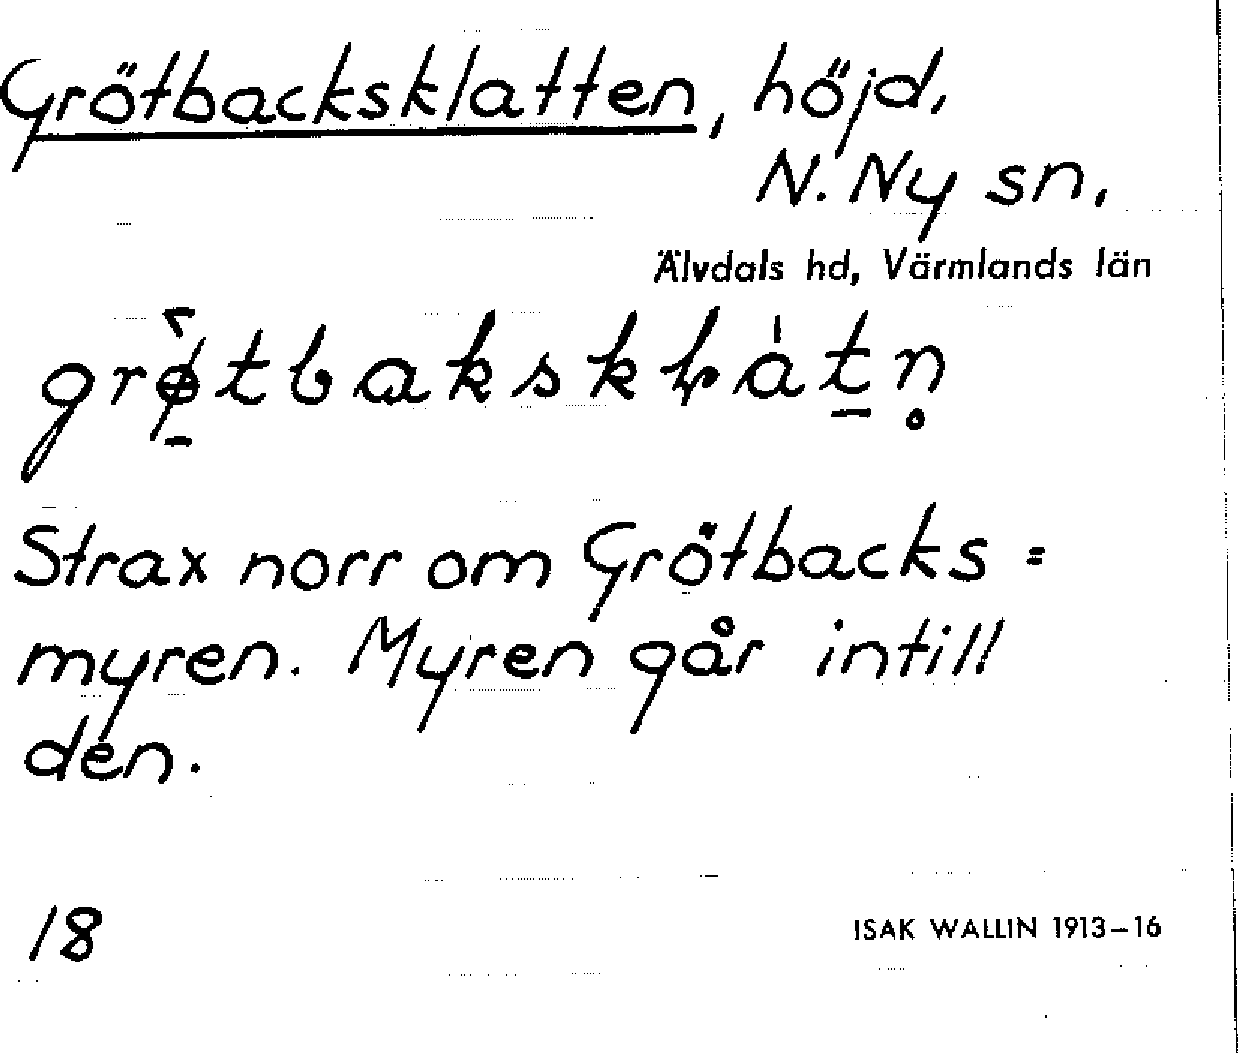 Grötbacksklatten, höjd,
N. Ny sn,
Älvdals hd, Värmlands län
Strax norr om Grötbacks=
myren. Myren går intill
den.
18
ISAK WALLIN 1913–16